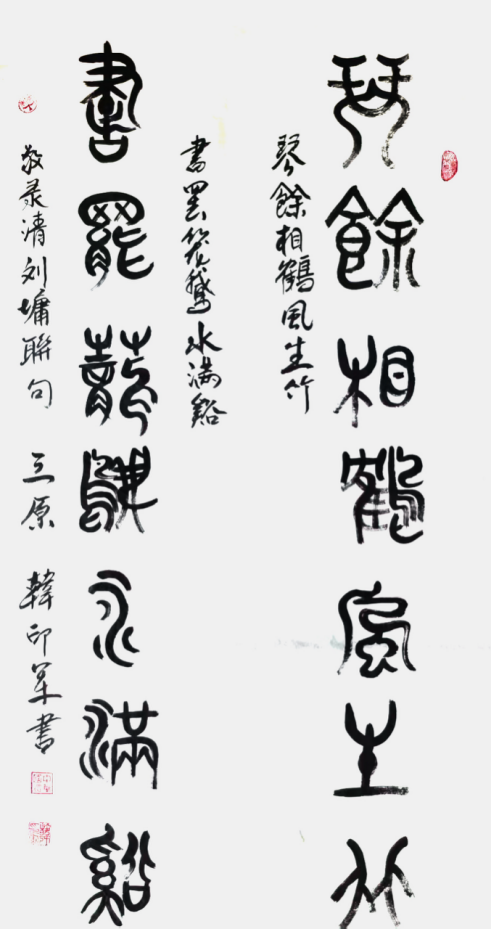 琴餘相鶴風生竹
琴餘相鶴風生竹
書罷籠鵝水滿谿
書罷籠鵝水滿谿
敬录清刘墉联句 三原 韓印萊書